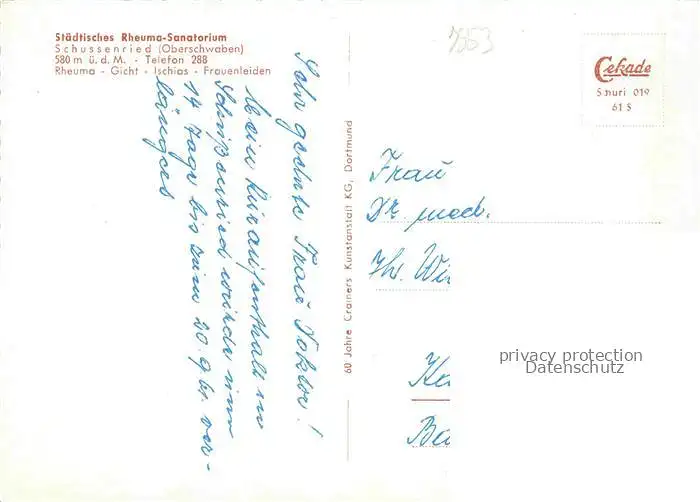 Städtisches Rheuma-Sanatorium
Schussenried (Oberschwaben)
580 m ü. d. M. - Telefon 288
Rheuma - Gicht - Ischias - Frauenleiden
Sehr geehrte Frau Doktor!
Mein Kuraufenthalt in
Schußenried wurde um
14 Tage bis zum 20.9.61. ver-
längert
60 Jahre Cramers Kunstanstalt KG, Dortmund
7953
Cekade
Schuri 019
61 S
Frau
Dr. med.
Th. Wi
Ka
Ba
privacy protection
Datenschutz